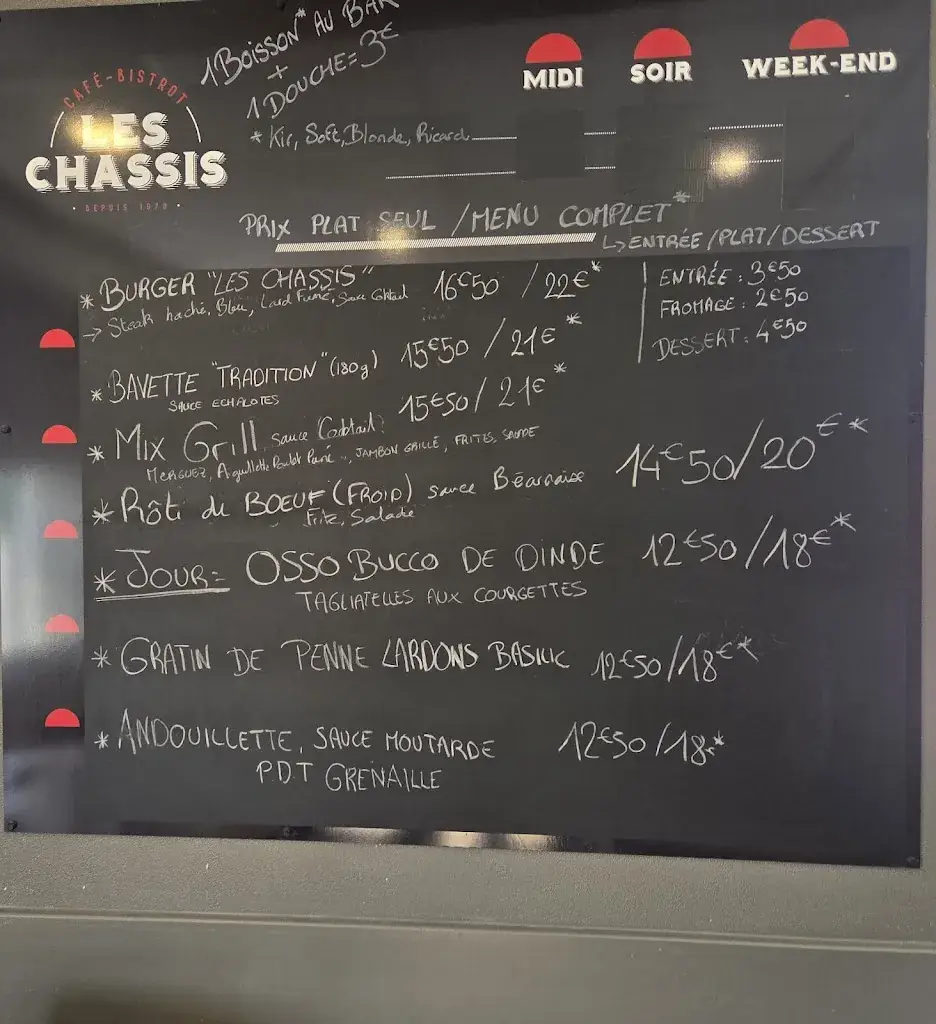 1 BOISSON* AU BAR
+
1 DOUCHE = 3€
* Kir, Soft, Blonde, Ricard
CAFÉ-BISTROT
LES
CHASSIS
DEPUIS 1970
MIDI
SOIR
WEEK-END
PRIX PLAT SEUL / MENU COMPLET*
↳ ENTRÉE / PLAT / DESSERT
* BURGER "LES CHASSIS" 16€50 / 22€*
→ Steak haché, Bleu, Lard Fumé, Sauce Cocktail
ENTRÉE : 3€50
FROMAGE : 2€50
DESSERT : 4€50
* BAVETTE "TRADITION" (180g) 15€50 / 21€*
SAUCE ECHALOTES
* MIX Grill sauce Cocktail 15€50 / 21€*
MERGUEZ, Aiguillette Poulet Pané, JAMBON GRILLÉ, FRITES, SALADE
* Rôti de BOEUF (FROID) sauce Béarnaise 14€50/20€*
Frite, Salade
* JOUR = OSSO BUCCO DE DINDE 12€50/18€*
TAGLIATELLES AUX COURGETTES
* GRATIN DE PENNE LARDONS BASILIC 12€50/18€*
* ANDOUILLETTE, SAUCE MOUTARDE 12€50/18.*
P.D.T GRENAILLE